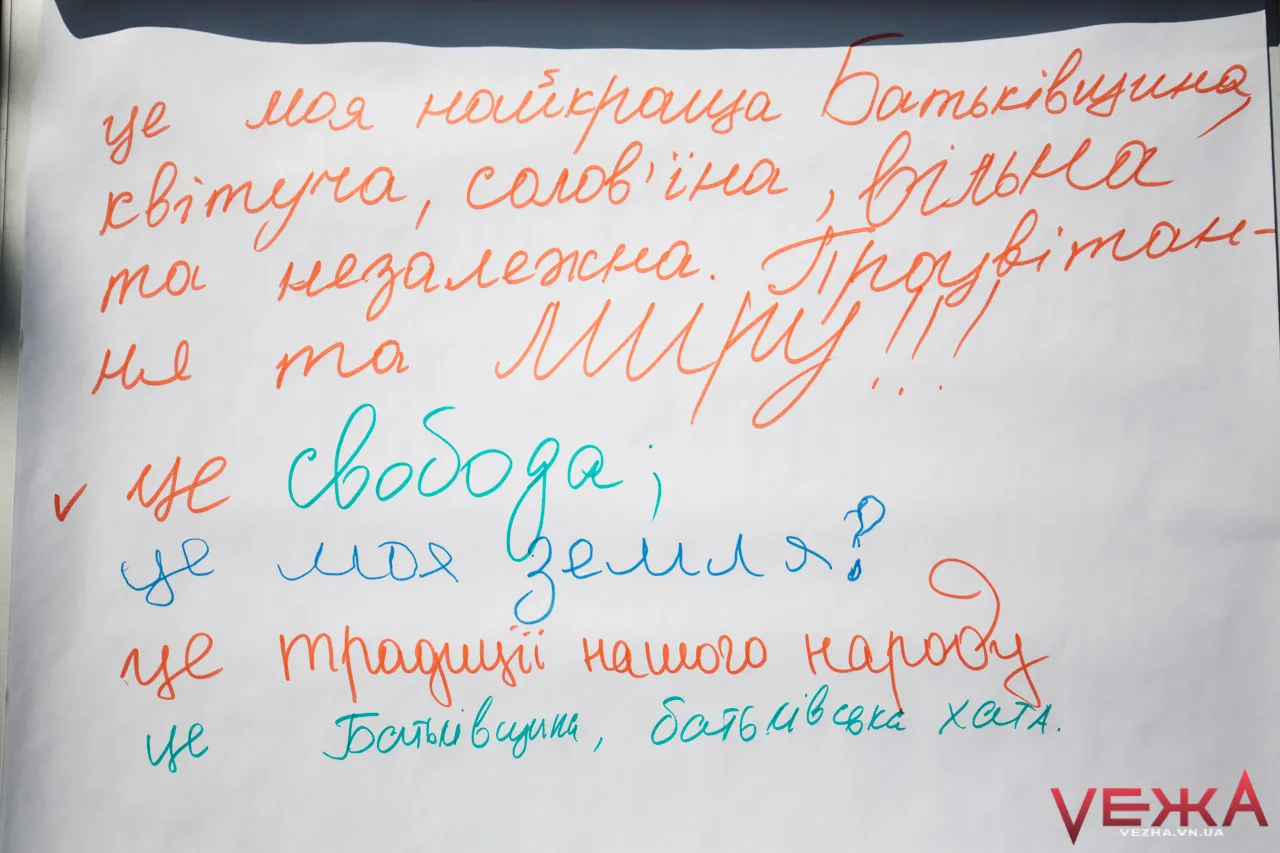 це моя найкраща Батьківщина,
квітуча, солов'їна, вільна
та незалежна. Процвітан-
ня та МИРУ!!!
✓ це свобода;
це моя земля?
це традиції нашого народу
це Батьківщина, батьківська хата.
VЕЖА
VEZHA.VN.UA